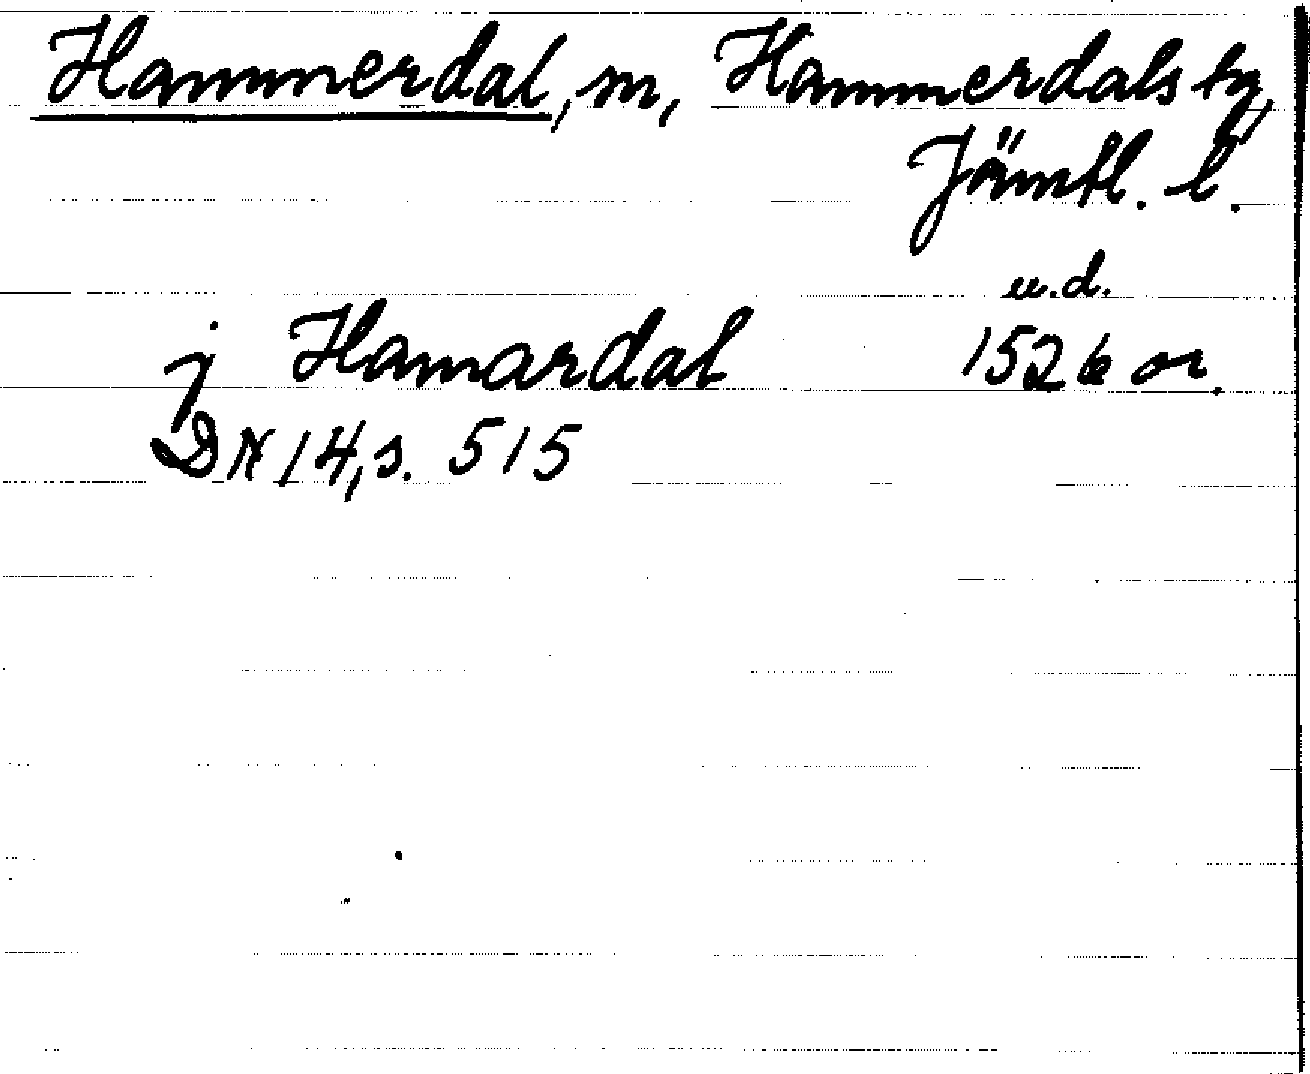 Hammerdal, sn, Hammerdals tg,
Jämtl. l.
u.d.
j Hamardal 1526 or.
DN 14, s. 515